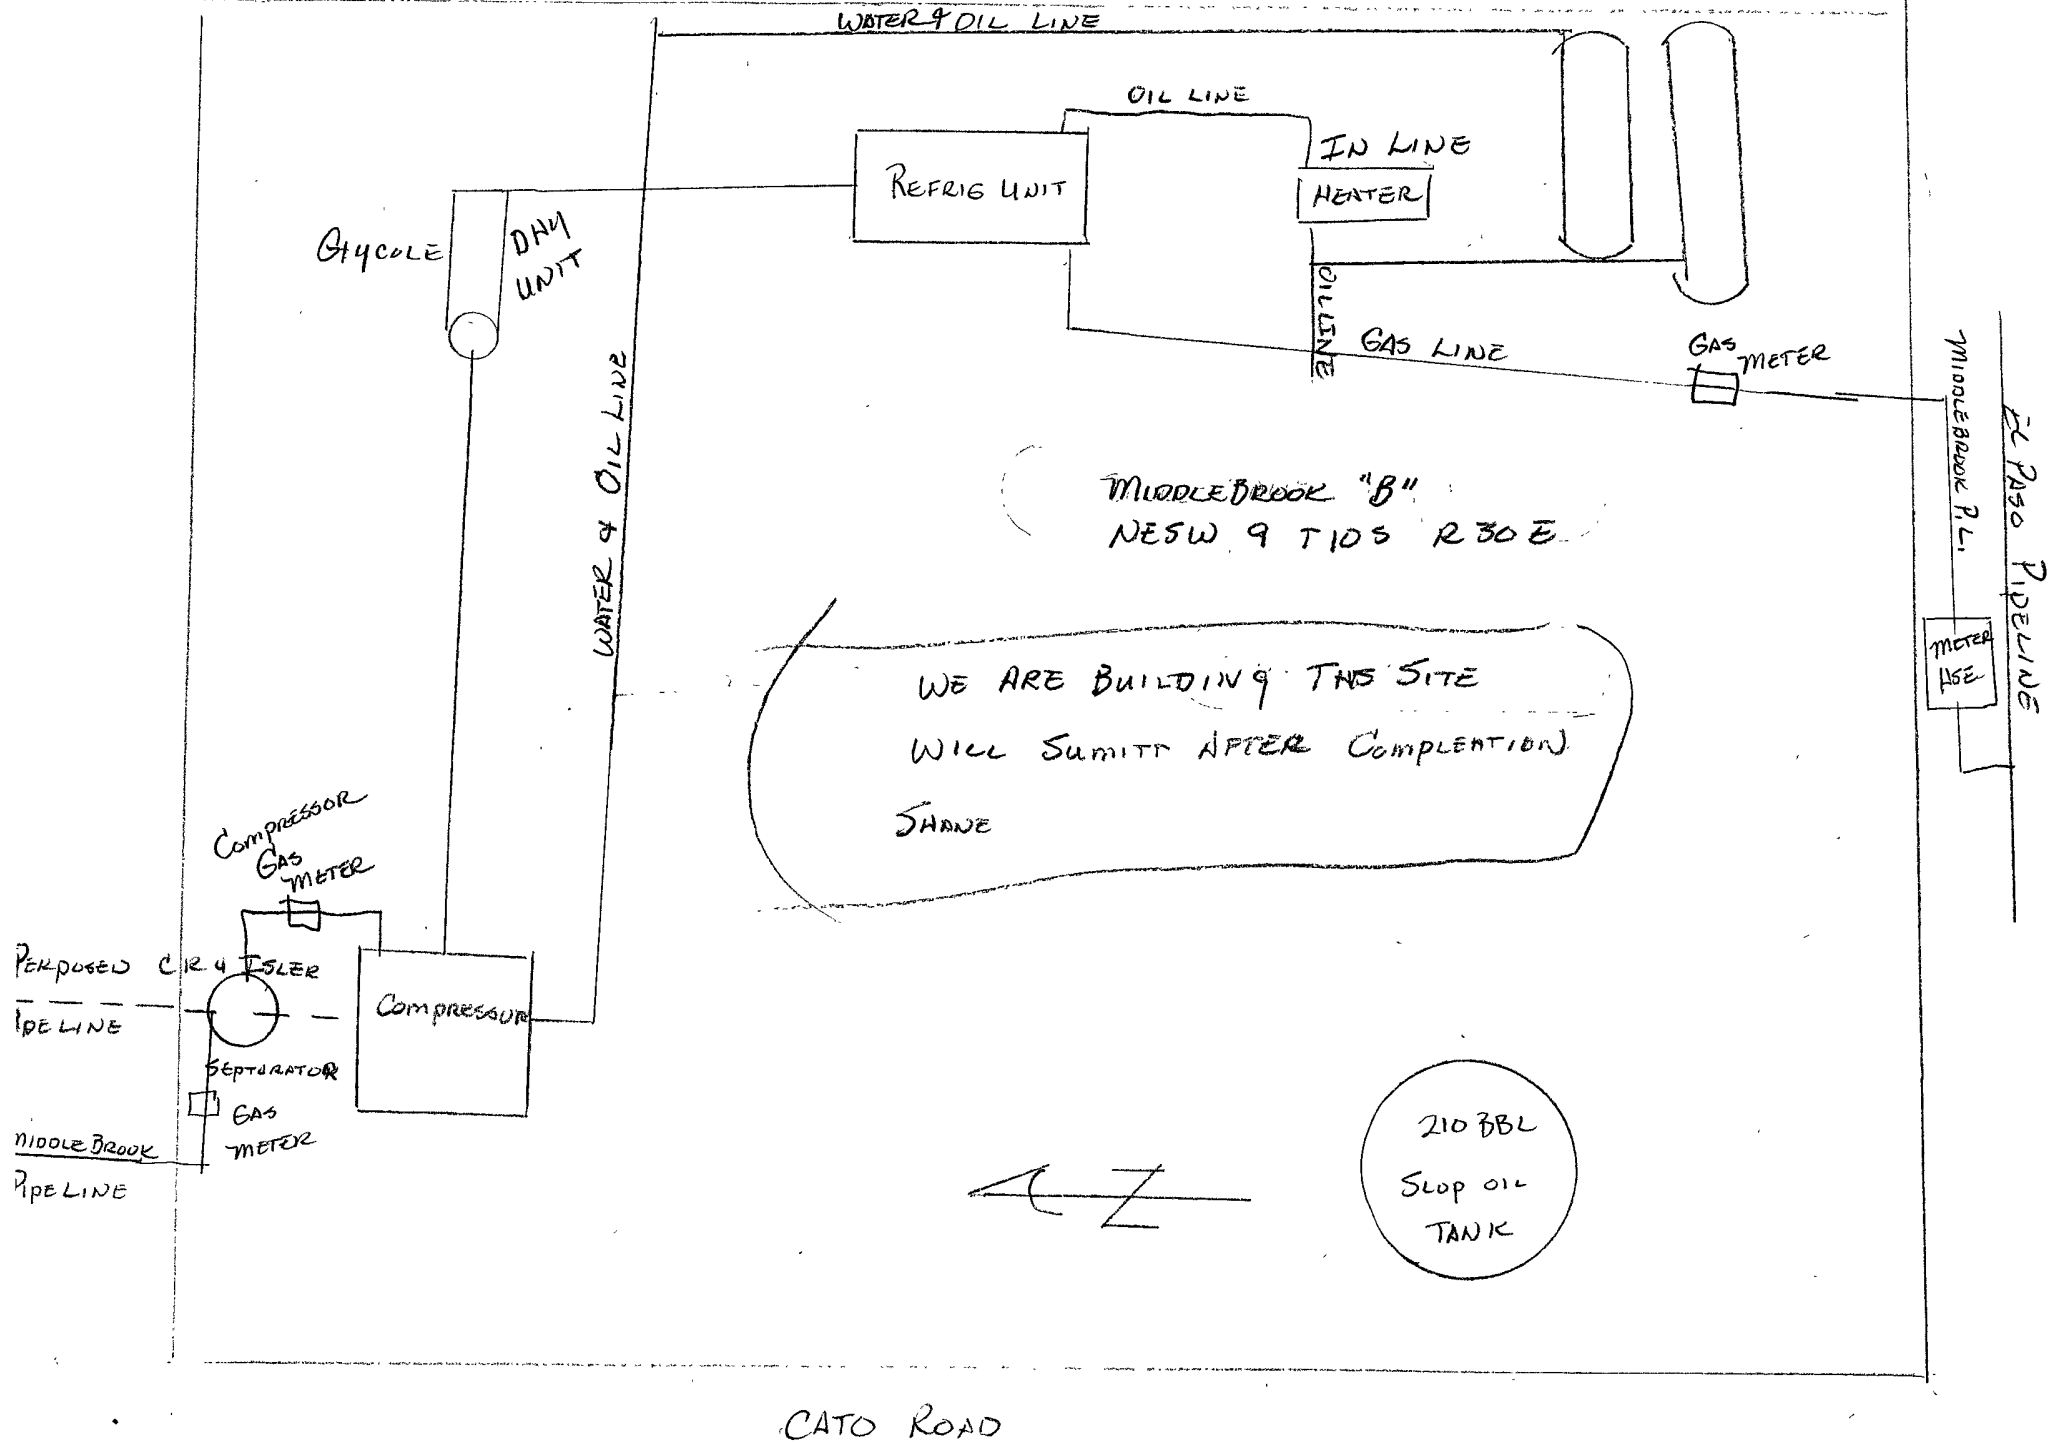 WATER & OIL LINE
OIL LINE
IN LINE
HEATER
REFRIG UNIT
GLYCOLE
DHY
UNIT
OIL LINE
GAS LINE
GAS
METER
MIDDLEBROOK P.L.
EL PASO PIPELINE
WATER & OIL LINE
MIDDLEBROOK "B"
NESW 9 T10S R30E
METER
HSE
WE ARE BUILDING THIS SITE
WILL SUMITT AFTER COMPLEATION
SHANE
COMPRESSOR
GAS
METER
PERPOSED CR4 ISLER
PIPELINE
COMPRESSOR
SEPTURATOR
GAS
METER
MIDDLEBROOK
PIPELINE
N
210 BBL
SLOP OIL
TANK
CATO ROAD